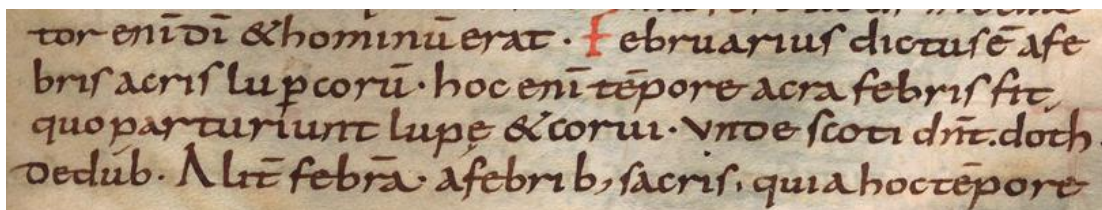 tor eni̅ di̅ &hominu̅ erat · Februarius dictus e̅ afe
bris acris luꝑcoru̅ · hoc eni̅ te̅pore acra febris fit,
quo parturiunt lupę & corui · vnde scoti dn̅t. doth
dedúb · Alit̅ febra̅ · afebrib; sacris, quia hoc te̅pore